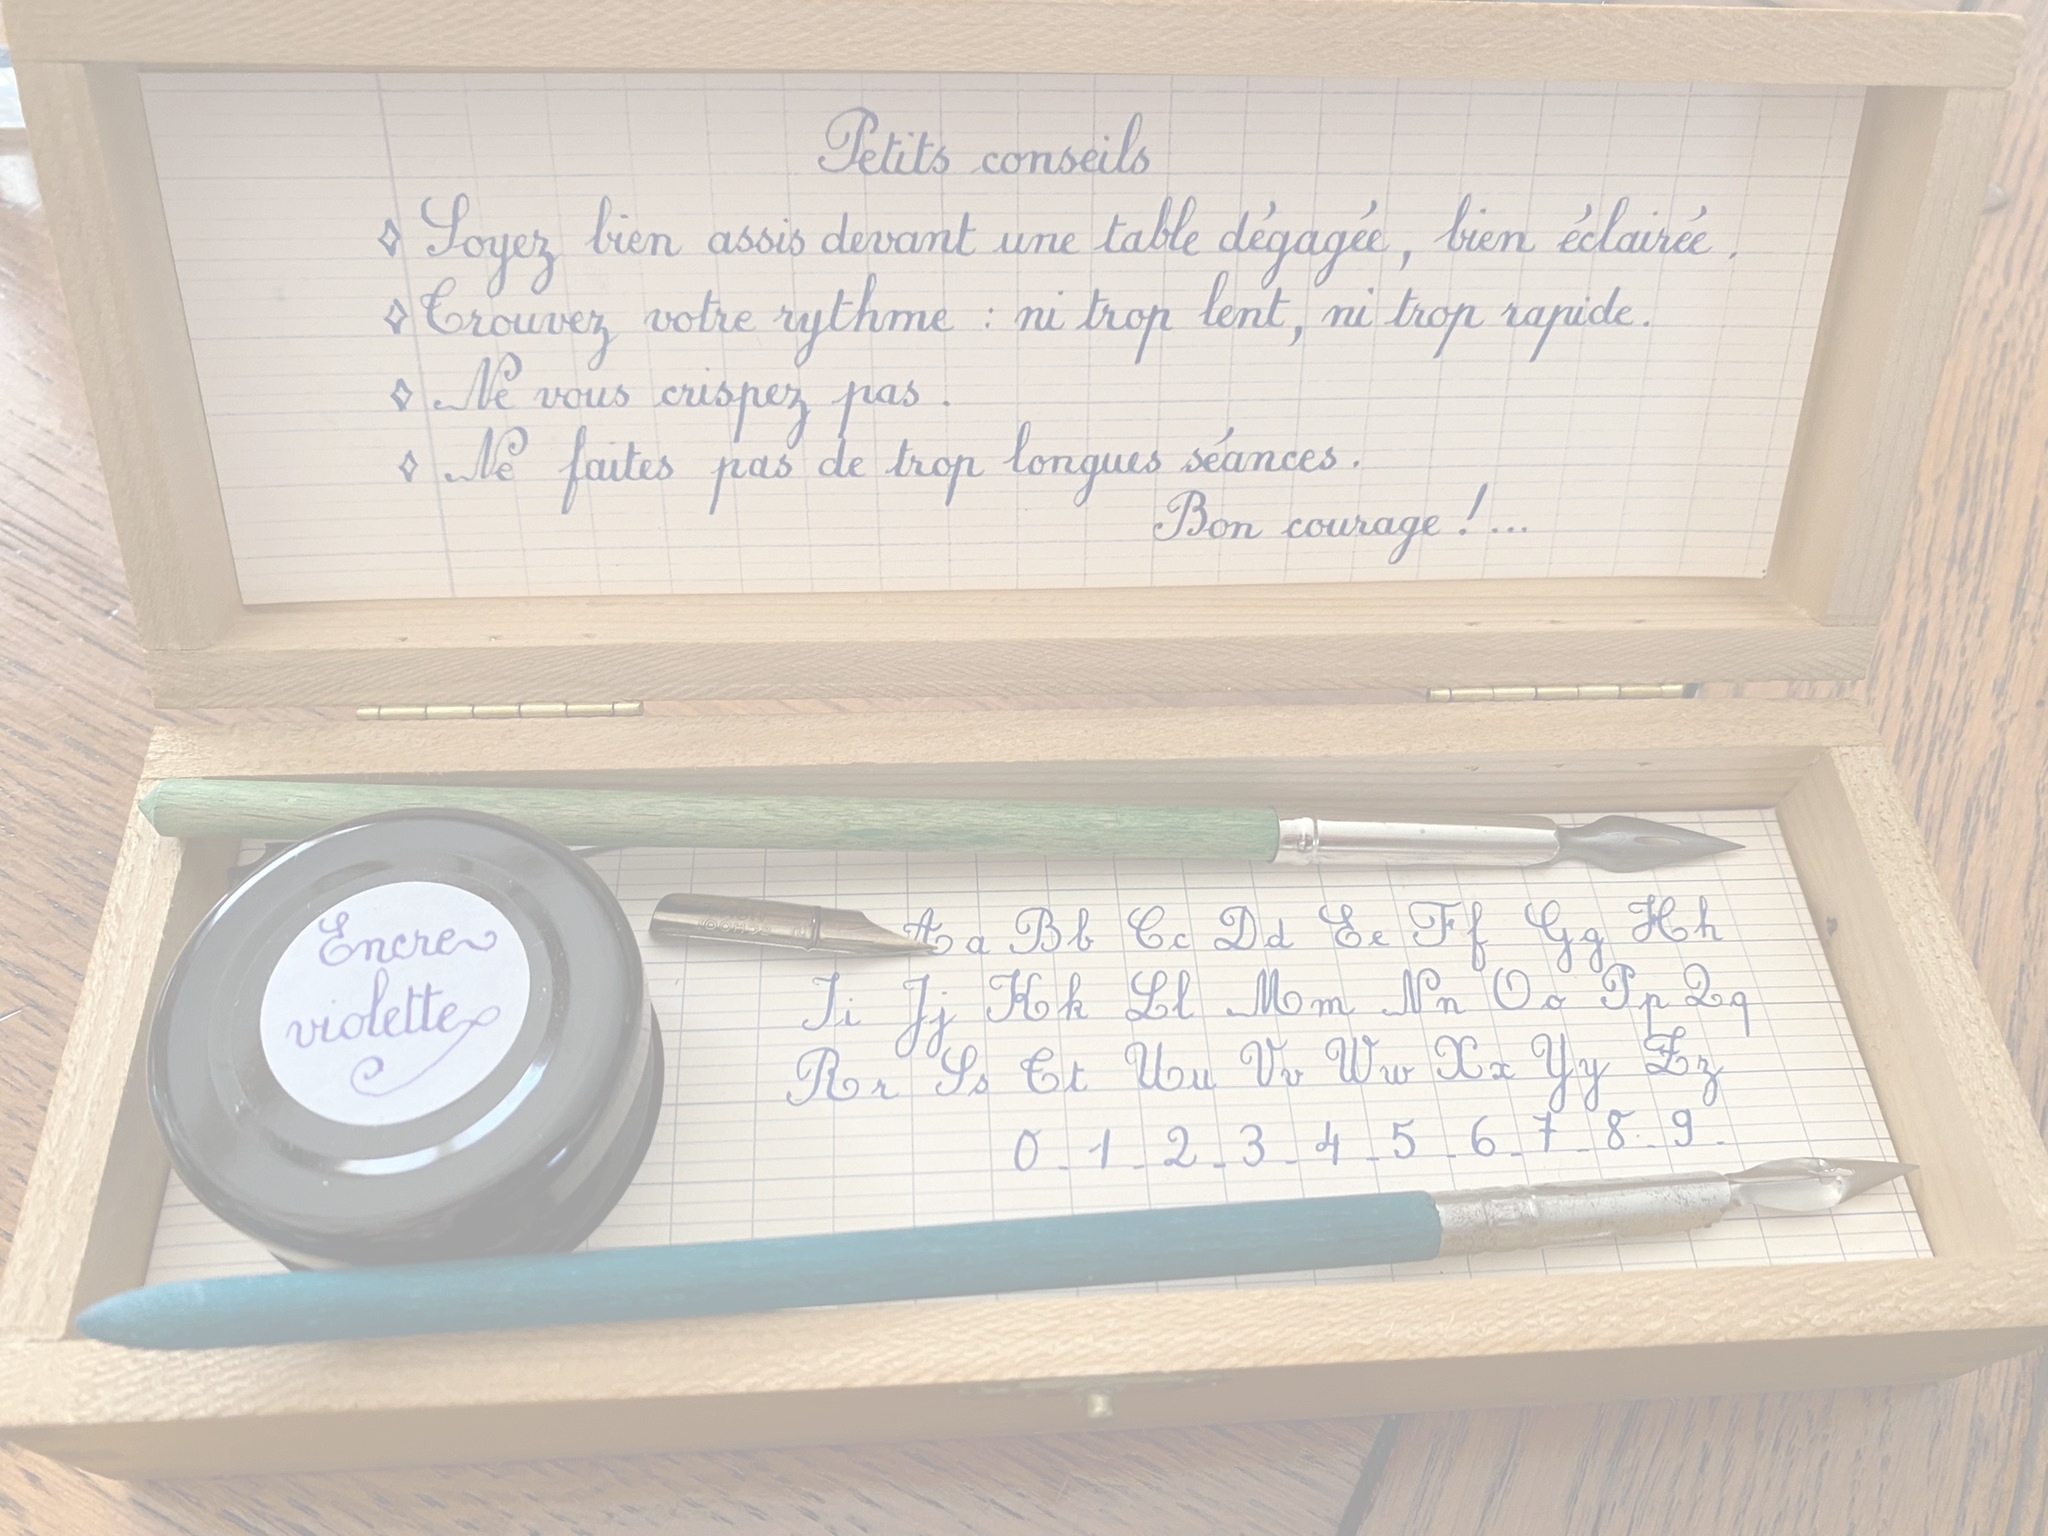 Petits conseils
◊ Soyez bien assis devant une table dégagée, bien éclairée.
◊ Trouvez votre rythme : ni trop lent, ni trop rapide.
◊ Ne vous crispez pas.
◊ Ne faites pas de trop longues séances.
Bon courage !...
Encre
violette
Aa Bb Cc Dd Ee Ff Gg Hh
Ii Jj Kk Ll Mm Nn Oo Pp Qq
Rr Ss Tt Uu Vv Ww Xx Yy Zz
0 - 1 - 2 - 3 - 4 - 5 - 6 - 7 - 8 - 9 -